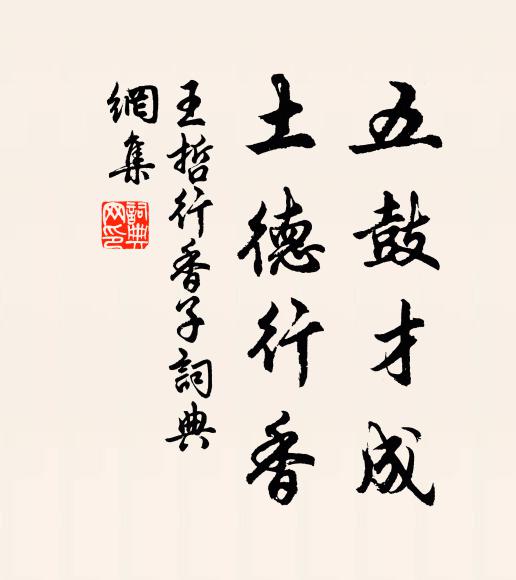 五鼓才成
土德行香
王哲行香子詞典
網集
詞典
网印